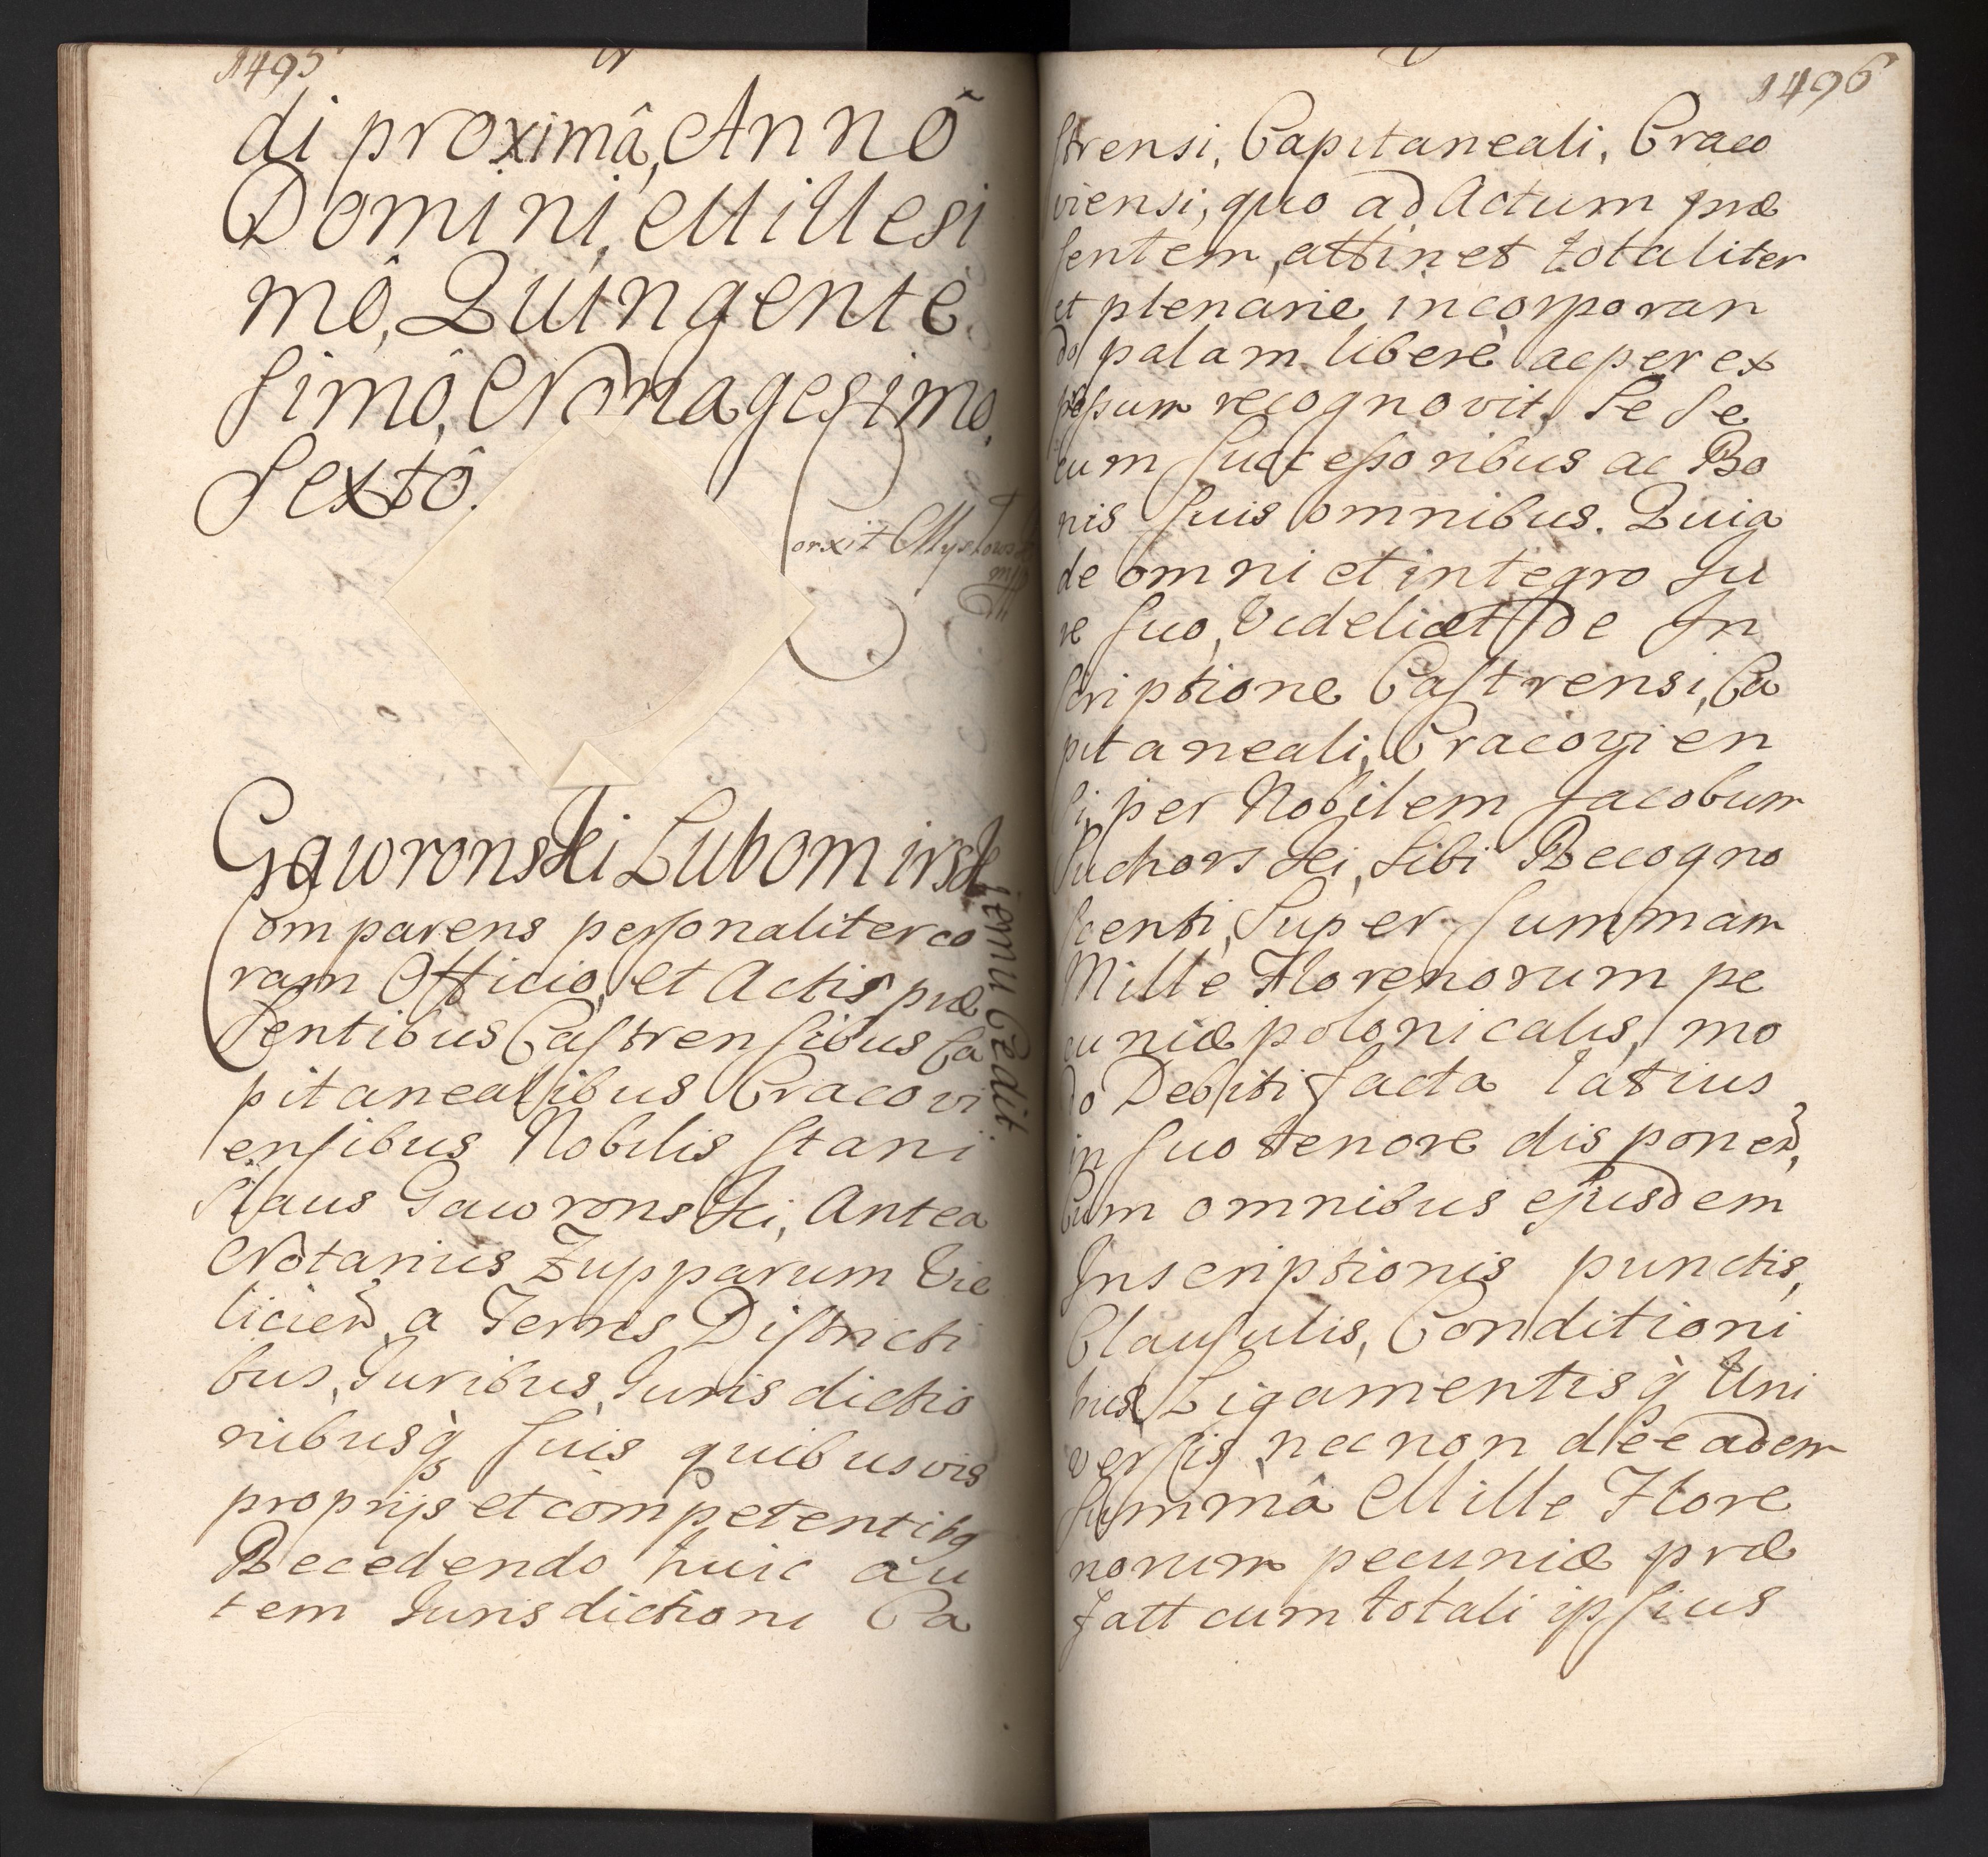 1495
di proximâ, Annô
Domini, Millesi
mô, Quingente
simô, Nonagesimo,
Sextô.
orxit
Gawronski Lubomirsk
iemu Cedit.
Comparens personaliter co
ram Officio, et Actis præ
sentibus Castrensibus Ca
pitanealibus Cracovi
ensibus Nobilis Stani
slaus Gawronski, Antea
Notarius Zupparum Vie
licien̄ a Terris Districti
bus, Juribus, Jurisdictio
nibusq̀ suis quibusvis
proprijs et competentibq
Recedendo huic au
tem Jurisdictioni Ca
1496
strensi, Capitaneali, Craco
viensi, quo ad Actum præ
sentem, attinet totaliter
et plenarie incorporan
do palam liberè ac per ex
pressum recognovit, Se se
cum Successoribus ac Bo
nis suis omnibus. Quia
de omni et integro Ju
re suo, Videlicet de In
scriptione Castrensi, Ca
pitaneali, Cracovien
si, per Nobilem Jacobum
Suchorski, Sibi Recogno
scenti, Super summam
Mille Florenorum pe
cuniæ polonicalis, mo
do Debiti facta latius
in suo tenore disponen̄,
Cum omnibus ejusdem
Inscriptionis punctis,
Clausulis, Conditioni
bus Ligamentisq̀ Uni
versis, nec non de eadem
Summâ Mille Flore
norum pecuniæ præ
fatt cum totali ipsius